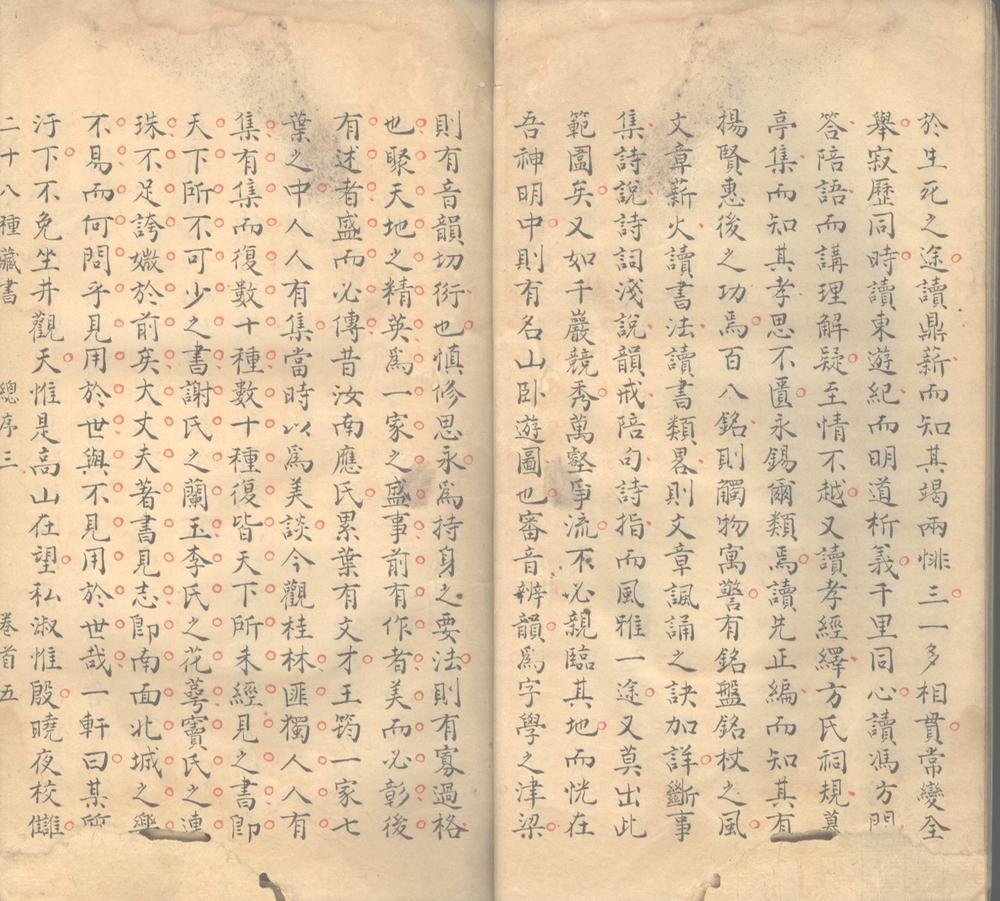 於生死之途讀鼎薪而知其竭兩悱三一多相貫常變全
舉寂歷同時讀東遊紀而明道析義千里同心讀馮方問
答陪語而講理解疑至情不越又讀孝經繹方氏祠規奠
亭集而知其孝思不匱永錫爾類焉讀先正編而知其有
揚賢惠後之功焉百八銘則觸物寓警有銘盤銘杖之風
文章薪火讀書法讀書類畧則文章諷誦之訣加詳斷事
集詩說詩詞淺說韻戒陪句詩指而風雅一途又莫出此
範圍矣又如千巖競秀萬壑爭流不必親臨其地而恍在
吾神明中則有名山卧遊圖也審音辨韻爲字學之津梁
則有音韻切衍也慎修思永爲持身之要法則有寡過格
也聚天地之精英爲一家之盛事前有作者美而必彰後
有述者盛而必傳昔汝南應氏累葉有文才王筠一家七
葉之中人人有集當時以爲美談今觀桂林匪獨人人有
集有集而復数十種数十種復皆天下所未經見之書卽
天下所不可少之書謝氏之蘭玉李氏之花萼竇氏之連
珠不足誇媺於前矣大丈夫著書見志卽南面北城之樂
不易而何問乎見用於世與不見用於世哉一軒曰某質
汙下不免坐井觀天惟是高山在望私淑惟殷曉夜校讎
二十八種藏書 總序三 卷首五